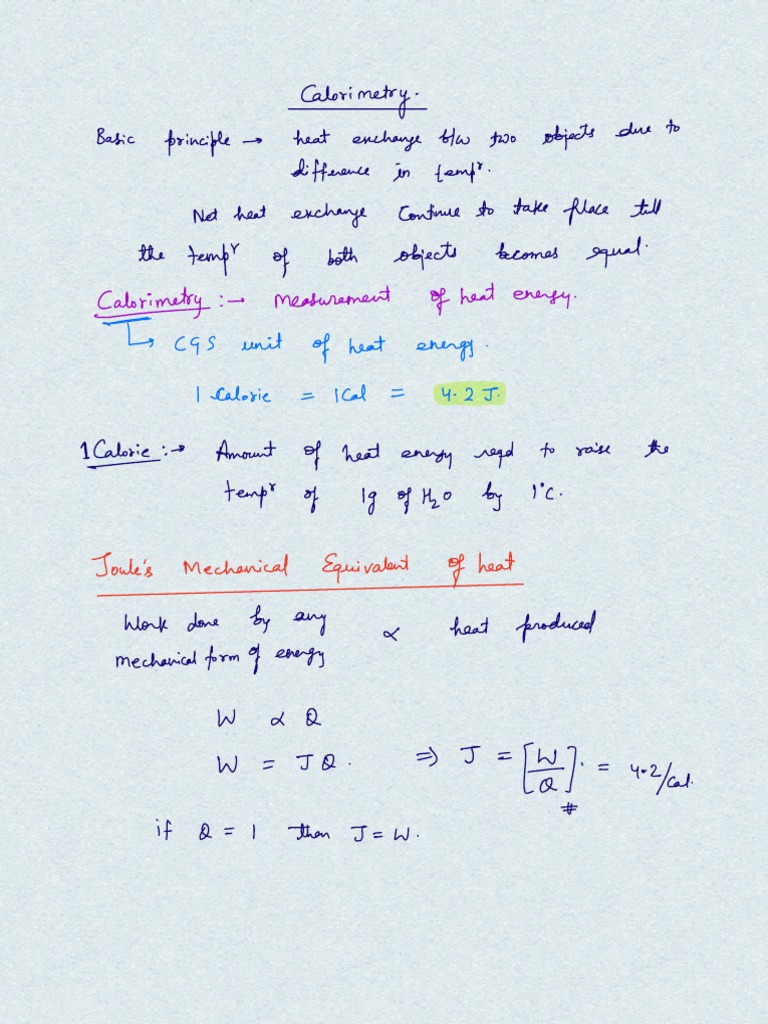 Calorimetry.
Basic principle → heat exchange b/w two objects due to
difference in tempʳ.
Net heat exchange Continue to take place till
the tempʳ of both objects becomes equal.
Calorimetry :→ Measurement of heat energy.
↳ CGS unit of heat energy.
1 Calorie = 1Cal = 4.2 J.
1 Calorie :→ Amount of heat energy reqd to raise the
tempʳ of 1g of H₂O by 1°C.
Joule's Mechanical Equivalent of heat
Work done by any
mechanical form of energy ∝ heat produced
W ∝ Q
W = JQ. ⇒ J = [W/Q]. = 4.2/Cal.
#
if Q = 1 then J = W.